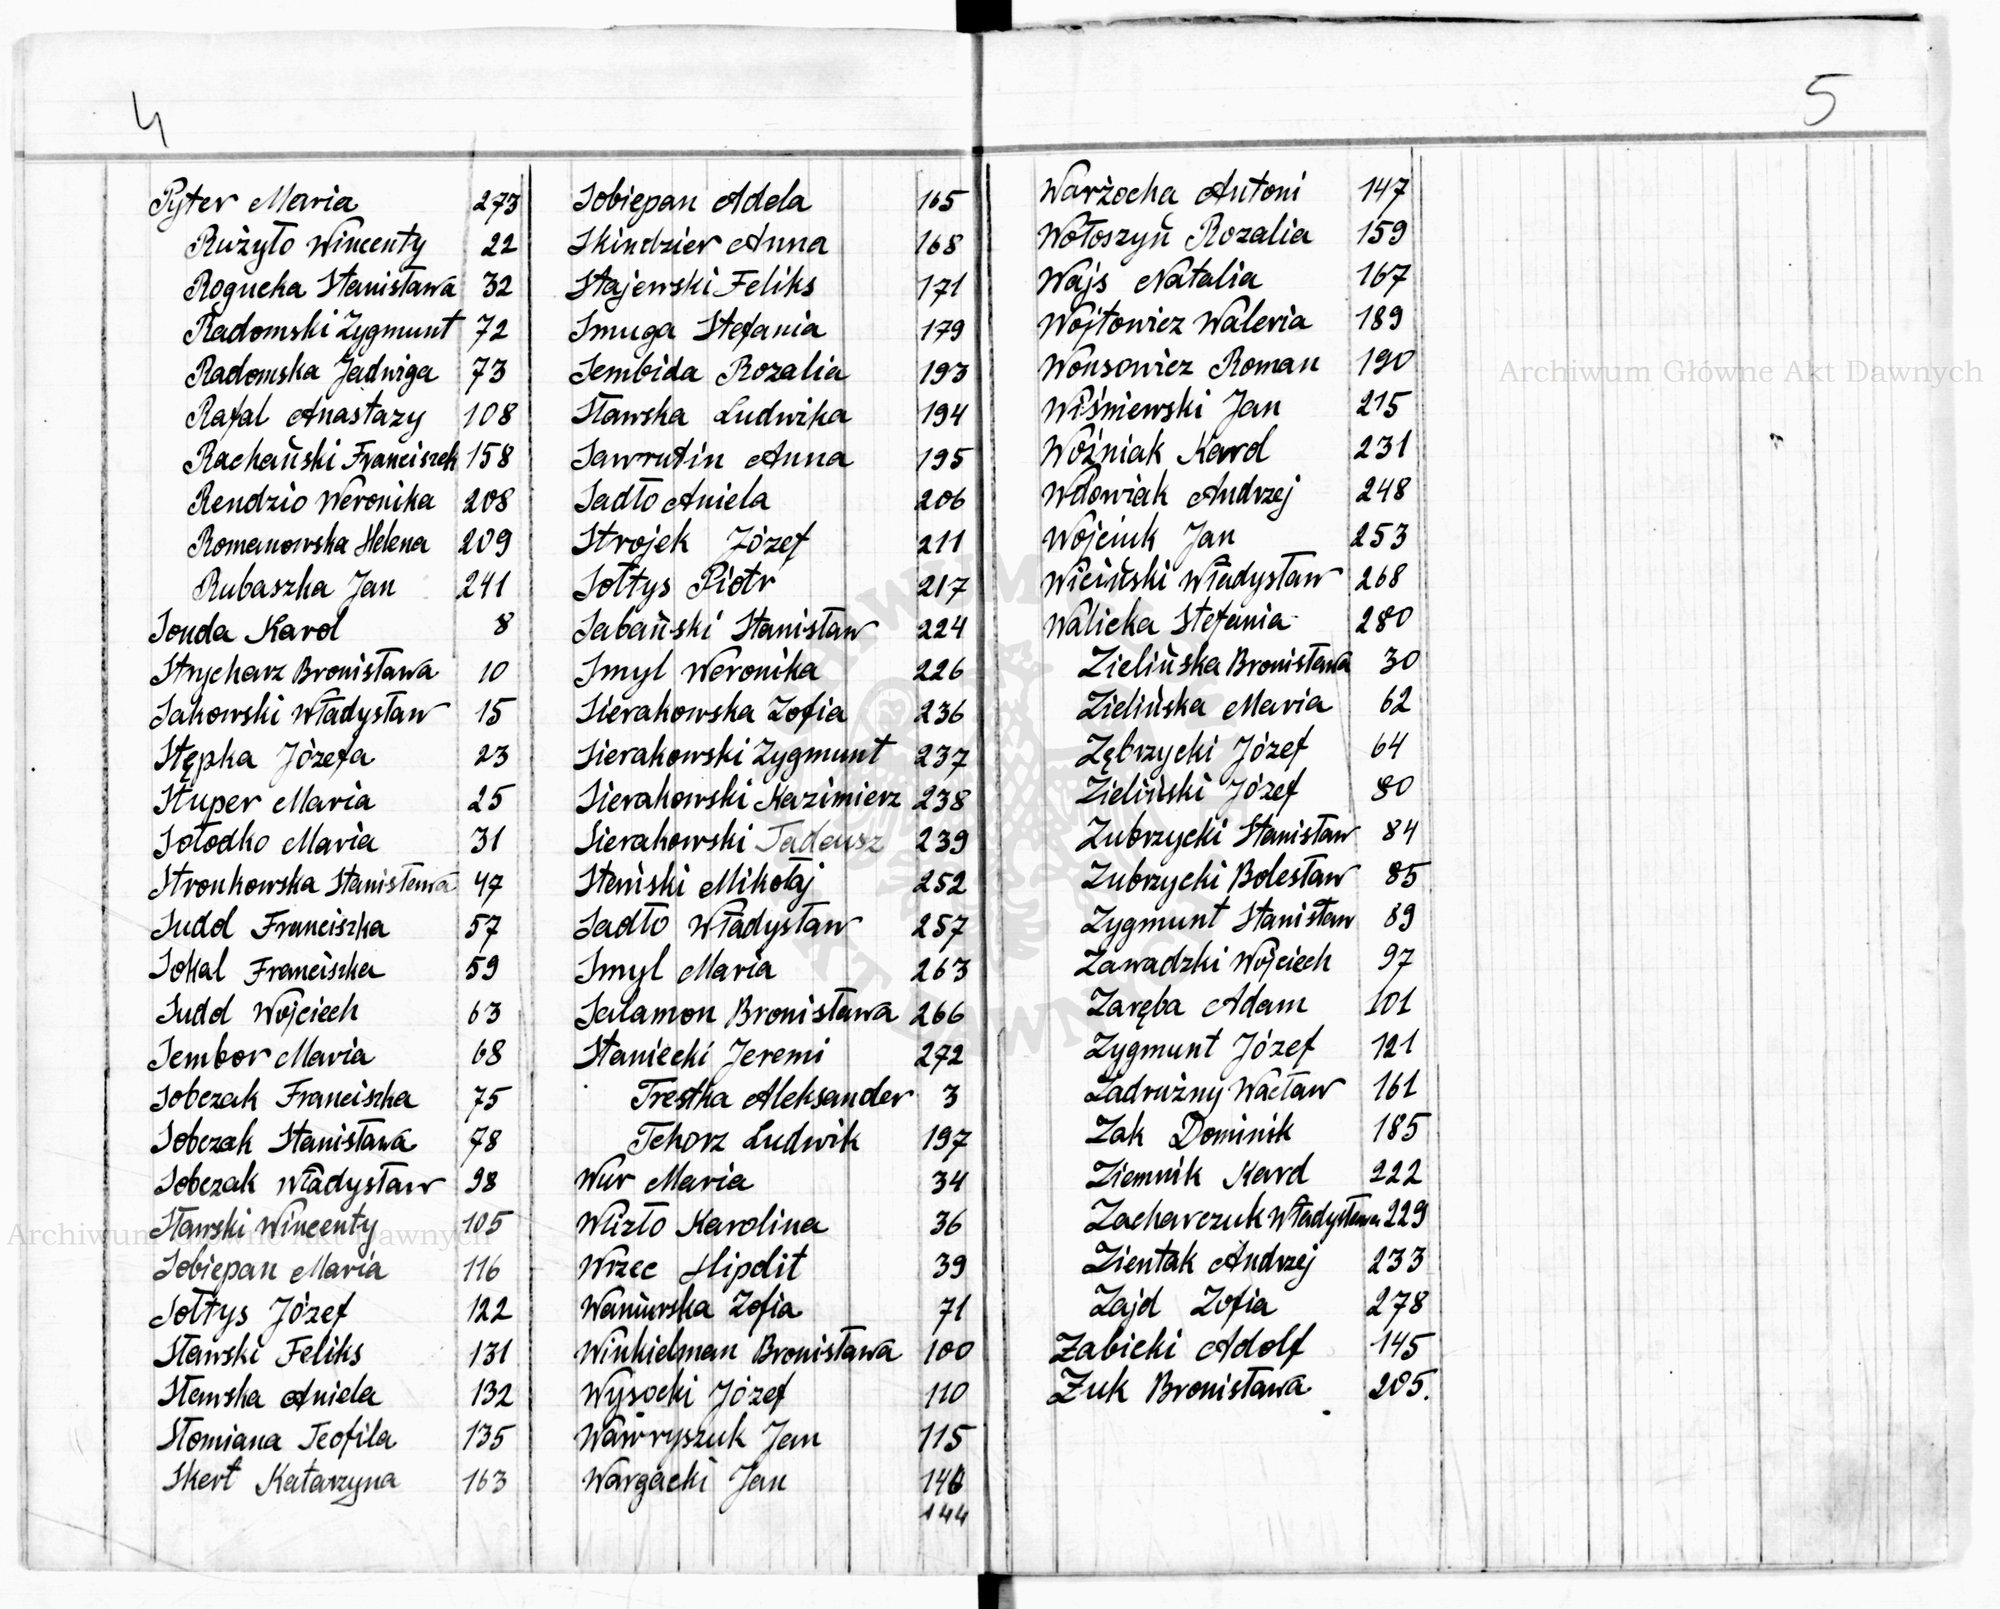 4
Pyter Maria 273
Rużyło Wincenty 22
Rogucka Stanisława 32
Radomski Zygmunt 72
Radomska Jadwiga 73
Rafal Anastazy 108
Rachański Franciszek 158
Rendzio Weronika 208
Romanowska Helena 209
Rubaszka Jan 241
Sonda Karol 8
Strycharz Bronisława 10
Sakowski Władysław 15
Stępka Józefa 23
Stuper Maria 25
Sołodko Maria 31
Stronkowska Stanisława 47
Sudoł Franciszka 57
Sokal Franciszka 59
Sudoł Wojciech 63
Sembor Maria 68
Sobczak Franciszka 75
Sobczak Stanisława 78
Sobczak Władysław 98
Sławski Wincenty 105
Sobiepan Maria 116
Sołtys Józef 122
Sławski Feliks 131
Sławska Aniela 132
Słomiana Teofila 135
Skert Katarzyna 163
Sobiepan Adela 165
Skindzier Anna 168
Stajewski Feliks 171
Smuga Stefania 179
Sembida Rozalia 193
Sławska Ludwika 194
Sawrutin Anna 195
Sadło Aniela 206
Strojek Józef 211
Sołtys Piotr 217
Sabański Stanisław 224
Smyl Weronika 226
Sierakowska Zofia 236
Sierakowski Zygmunt 237
Sierakowski Kazimierz 238
Sierakowski Tadeusz 239
Mikołaj 252
Sadło Władysław 257
Smyl Maria 263
Salamon Bronisława 266
Staniecki Jeremi 272
Trestka Aleksander 3
Tchorz Ludwik 197
Wur Maria 34
Wlizło Karolina 36
Wrzec Hipolit 39
Zofia 71
Winkielman Bronisława 100
Wysocki Józef 110
Wawryszuk Jan 115
Wargacki Jan 146
144
5
Warżocha Antoni 147
Wołoszyń Rozalia 159
Wajs Natalia 167
Wojtowicz Waleria 189
Wonsowicz Roman 190
Wiśniewski Jan 215
Woźniak Karol 231
Wdowiak Andrzej 248
Wojciuk Jan 253
Wiciński Władysław 268
Walicka Stefania 280
Zielińska Bronisława 30
Zielińska Maria 62
Zębrzycki Józef 64
Zieliński Józef 80
Zubrzycki Stanisław 84
Zubrzycki Bolesław 85
Zygmunt Stanisław 89
Zawadzki Wojciech 97
Zaręba Adam 101
Zygmunt Józef 121
Zadrużny Wacław 161
Zak Dominik 185
Ziemnik Karol 222
Zacharczuk Władysława 229
Zientak Andrzej 233
Zajd Zofia 278
Żabicki Adolf 145
Żuk Bronisława 205.
Archiwum Główne Akt Dawnych
Archiwum Główne Akt Dawnych